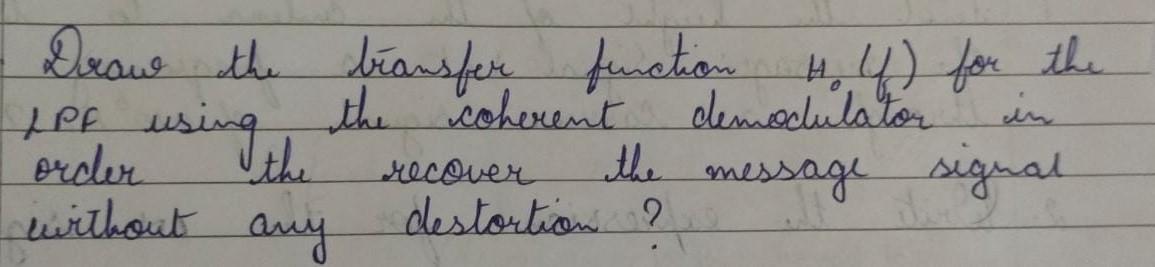 Draw the transfer function H₀(f) for the
LPF using the coherent demodulator in
order the recover the message signal
without any destortion ?